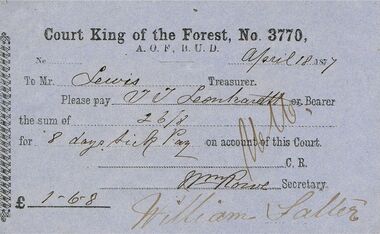 Court King of the Forest, No. 3770,
A. O. F., B. U. D.
No April 18 1877
To Mr. Lewis Treasurer.
Please pay T T Leonhardt or Bearer
the sum of 26/8
for 8 days Sick Pay on account of this Court.
C. R.
Wm Rowe Secretary.
£ 1-6-8
William Salter